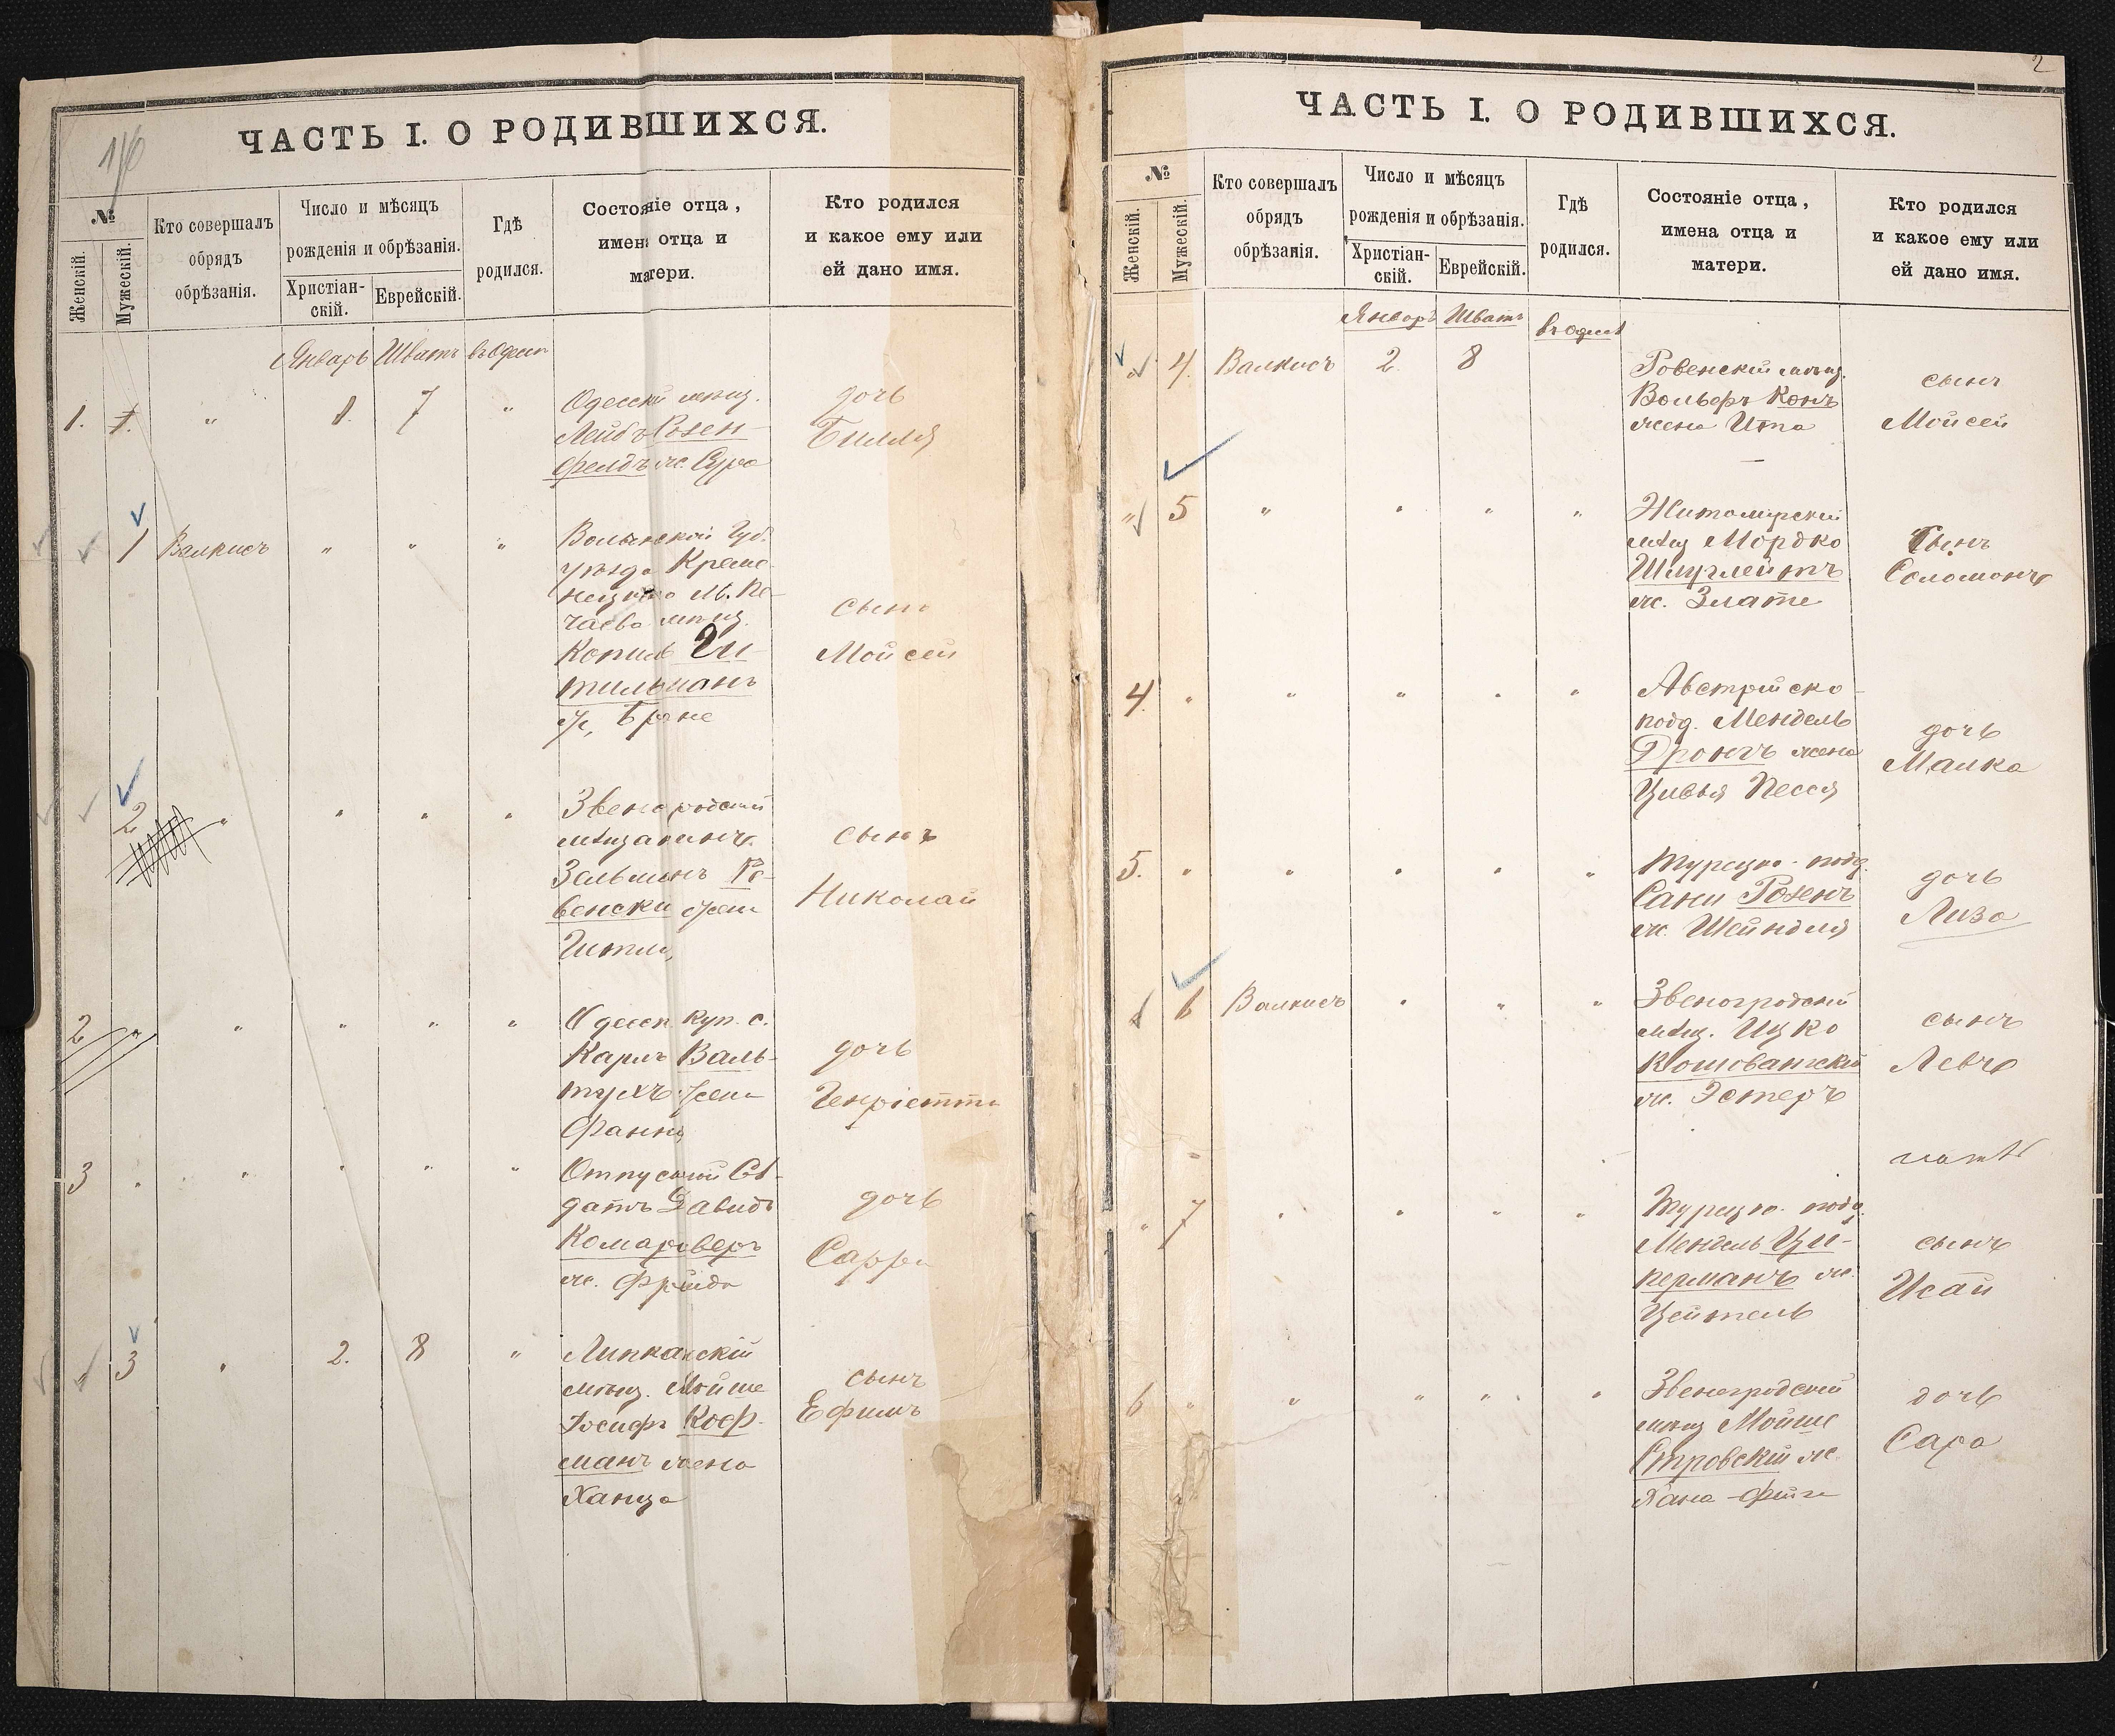 ЧАСТЬ I. О РОДИВШИХСЯ.
№
Женскій.
Мужескій.
Кто совершалъ
обрядъ
обрѣзанія.
Число и мѣсяцъ
рожденія и обрѣзанія.
Христіан-
скій.
Еврейскій.
Гдѣ
родился.
Состояніе отца,
имена отца и
матери.
Кто родился
и какое ему или
ей дано имя.
Январь Шватъ
1. 1. " 1. 7 "
Одесскій мѣщ.
Лейбъ Розен-
фелдъ ж. Сура
дочь
Билля
1 Валкисъ " " "
Волынской Губ.
уѣзда Креме-
нецкаго М. По-
чаева мѣщ.
Копиль Ги-
тильманъ
ж. Бране
сынъ
Мойсей
2 " " " "
Звенигородскій
мѣщанинъ
Зельманъ Ро-
венски жена
Гитля,
сынъ
Николай
2 " " " " "
Одесск. куп. с.
Карлъ Валь-
тухъ жена
Фанни
дочь
Генріетта
3 " " " " "
Отпускной Сол-
датъ Давидъ
Комаровер
ж. Фрейда
дочь
Сарра
3 " 2. 8 "
Липканскій
мѣщ. Мойше
Іосифъ Коф-
манъ жена
Ханца
сынъ
Ефимъ
2
ЧАСТЬ I. О РОДИВШИХСЯ.
№
Женскій.
Мужескій.
Кто совершалъ
обрядъ
обрѣзанія.
Число и мѣсяцъ
рожденія и обрѣзанія.
Христіан-
скій.
Еврейскій.
Гдѣ
родился.
Состояніе отца,
имена отца и
матери.
Кто родился
и какое ему или
ей дано имя.
Январь Шватъ
" 4. Валкисъ 2. 8
Ровенскій мѣщ.
Вольфъ Конъ
жена Ита
сынъ
Мойсей
" 5 " " " "
Житомирскій
мѣщ Мордко
ж. Злате
сынъ
Соломонъ
4. " " " " "
Австрійско-
подд. Мендель
жена
Цивья Песся
дочь
Малка
5. " " " " "
Турецко-подд.
Сани Розенъ
ж. Шейндля
дочь
Лиза
6 Валкисъ " " "
Звеногродскій
мѣщ. Ицко
Кошоватскій
ж. Эстеръ
сынъ
Левъ
" 7 " " " "
Турецко-подд.
Мендель Цу-
керманъ ж.
Цейтель
сынъ
Исай
6 " " " " "
Звеногродскій
мѣщ Мойше
Островскій ж.
Хана-Фейга
дочь
Сара